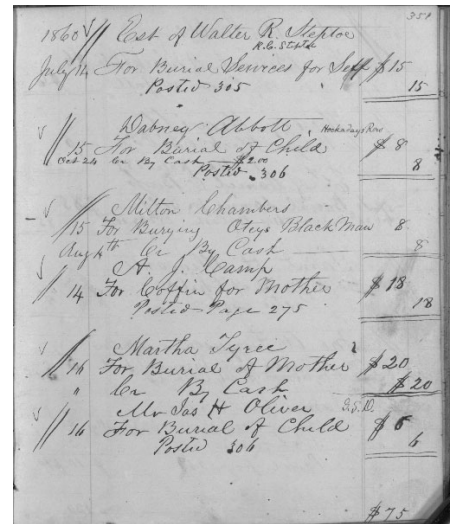 351
1860 Est of Walter R. Steptoe
R.C. Steptoe
July 14 For Burial Services for Self $15
Posted 305 15
Dabney Abbott, Hockadays Row
15 For Burial of Child $8
Oct 24 Cr By Cash $2.00 8
Posted 306
Milton Chambers
15 For Burying Oteys Black Man 8
Aug 4th Cr By Cash 8
A. J. Camp
14 For Coffin for Mother $18
Posted Page 275 18
Martha Tyree
16 For Burial of Mother $20
" Cr By Cash $20
Mr Jas H Oliver
16 For Burial of Child $6
Posted 306 6
$75